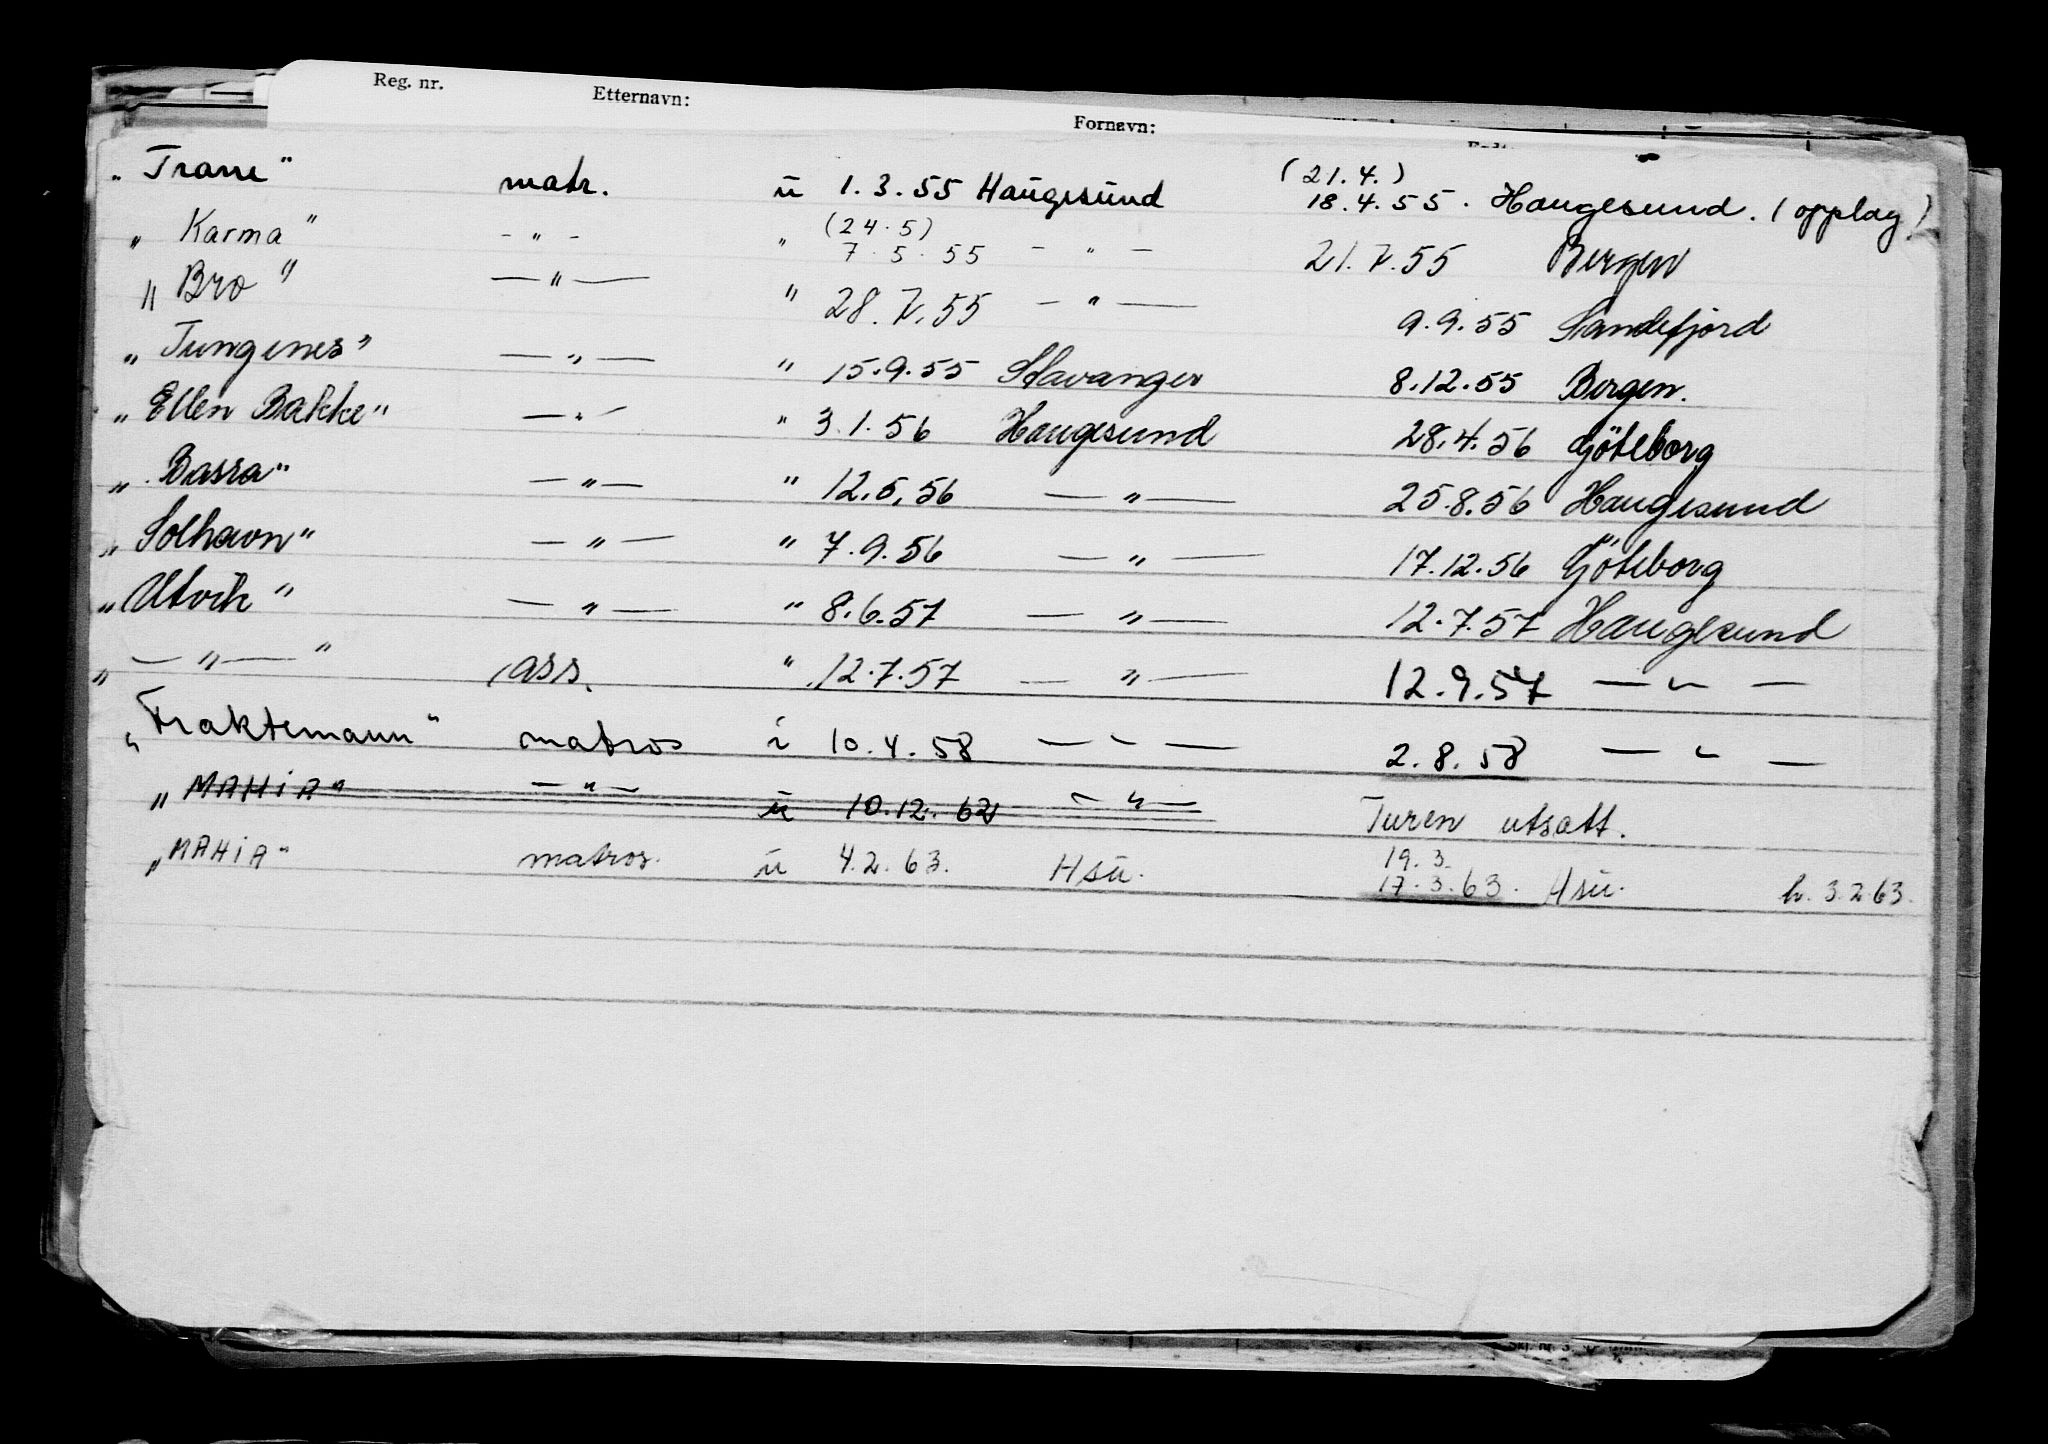 Reg. nr. Etternavn: Fornavn:
"Trane" matr. u 1.3.55 Haugesund (21.4.) 18.4.55. Haugesund. (opplag)
"Karma" - " - " (24.5) 7.5.55 - " - 21.7.55 Bergen
"Bro" - " - " 28.7.55 - " - 9.9.55 Sandefjord
"Tungenes" - " - " 15.9.55 Stavanger 8.12.55 Bergen.
"Ellen Bakke" - " - " 3.1.56 Haugesund 28.4.56 Göteborg
"Basra" - " - " 12.5.56 - " - 25.8.56 Haugesund
"Solhavn" - " - " 7.9.56 - " - 17.12.56 Göteborg
"Utvik" - " - " 8.6.57 - " - 12.7.57 Haugesund
" - " - " ass. " 12.7.57 - " - 12.9.57 - " -
"Fraktemann" matros i 10.4.58 - " - 2.8.58 - " -
"MAHiA" - " - u 10.12.62 - " - Turen utsatt.
"MAHiA" matros. u 4.2.63. Hsu. 19.3. 17.3.63. Hsu. h. 3.2.63.